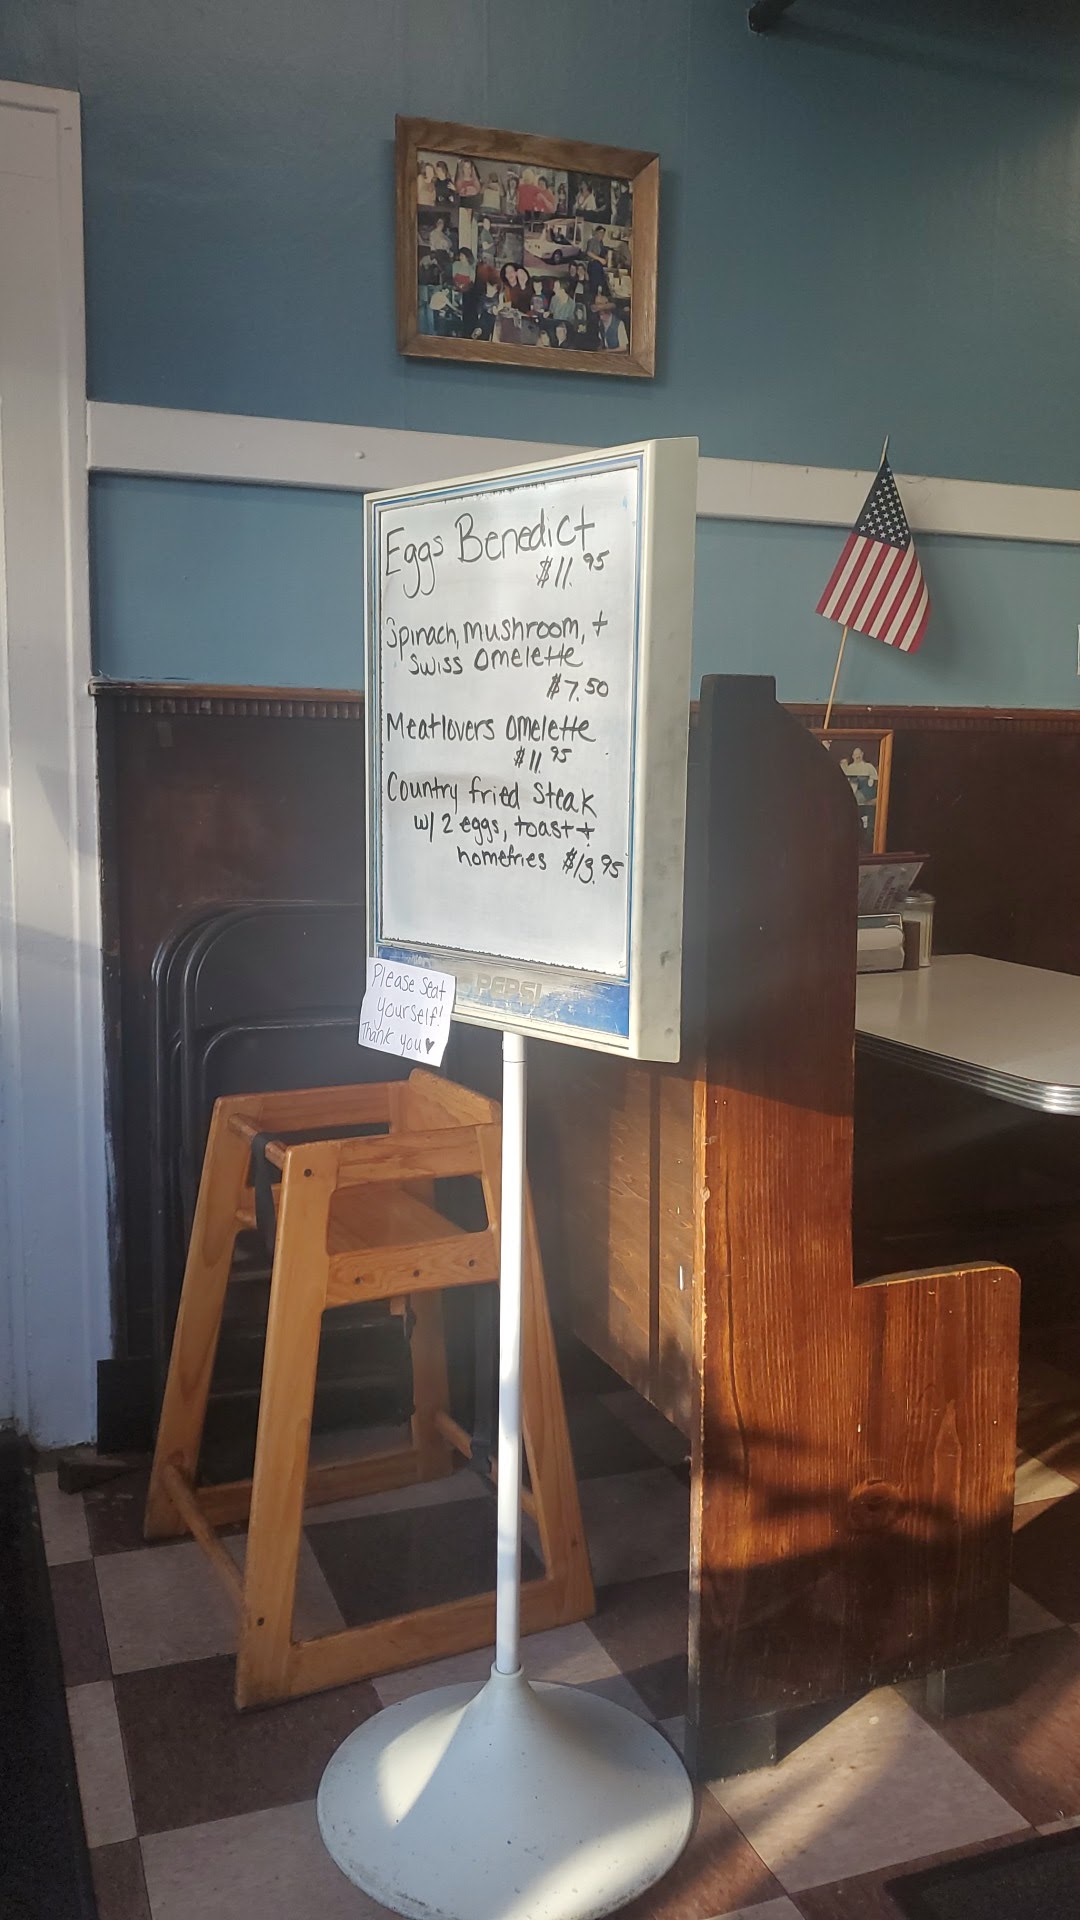 Eggs Benedict
$11.95
Spinach, mushroom, +
Swiss omelette
$7.50
Meatlovers omelette
$11.95
Country fried Steak
w/ 2 eggs, toast +
homefries $13.95
PEPSI
Please Seat
yourself!
Thank you ♥